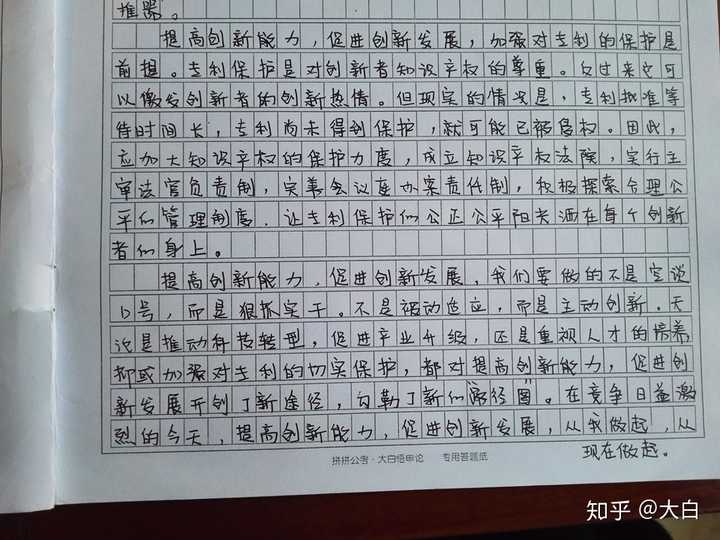 推器。
提高创新能力,促进创新发展,加强对专利的保护是
前提。专利保护是对创新者知识产权的尊重。反过来它可
以激发创新者的创新热情。但现实的情况是,专利批准等
待时间长,专利尚未得到保护,就可能已被侵权。因此,
应加大知识产权的保护力度,成立知识产权法院,实行主
审法官负责制,完善会议庭办案责任制,积极探索合理公
平的管理制度,让专利保护的公正公平阳光洒在每个创新
者的身上。
提高创新能力,促进创新发展,我们要做的不是空谈
口号,而是狠抓实干。不是被动适应,而是主动创新。无
论是推动科技转型,促进产业升级,还是重视人才的培养,
抑或加强对专利的切实保护,都对提高创新能力,促进创
新发展开创了新途径,勾勒了新的"路径图"。在竞争日益激
烈的今天,提高创新能力,促进创新发展,从我做起,从
现在做起。
拼拼公考·大白悟申论 专用答题纸
知乎 @大白